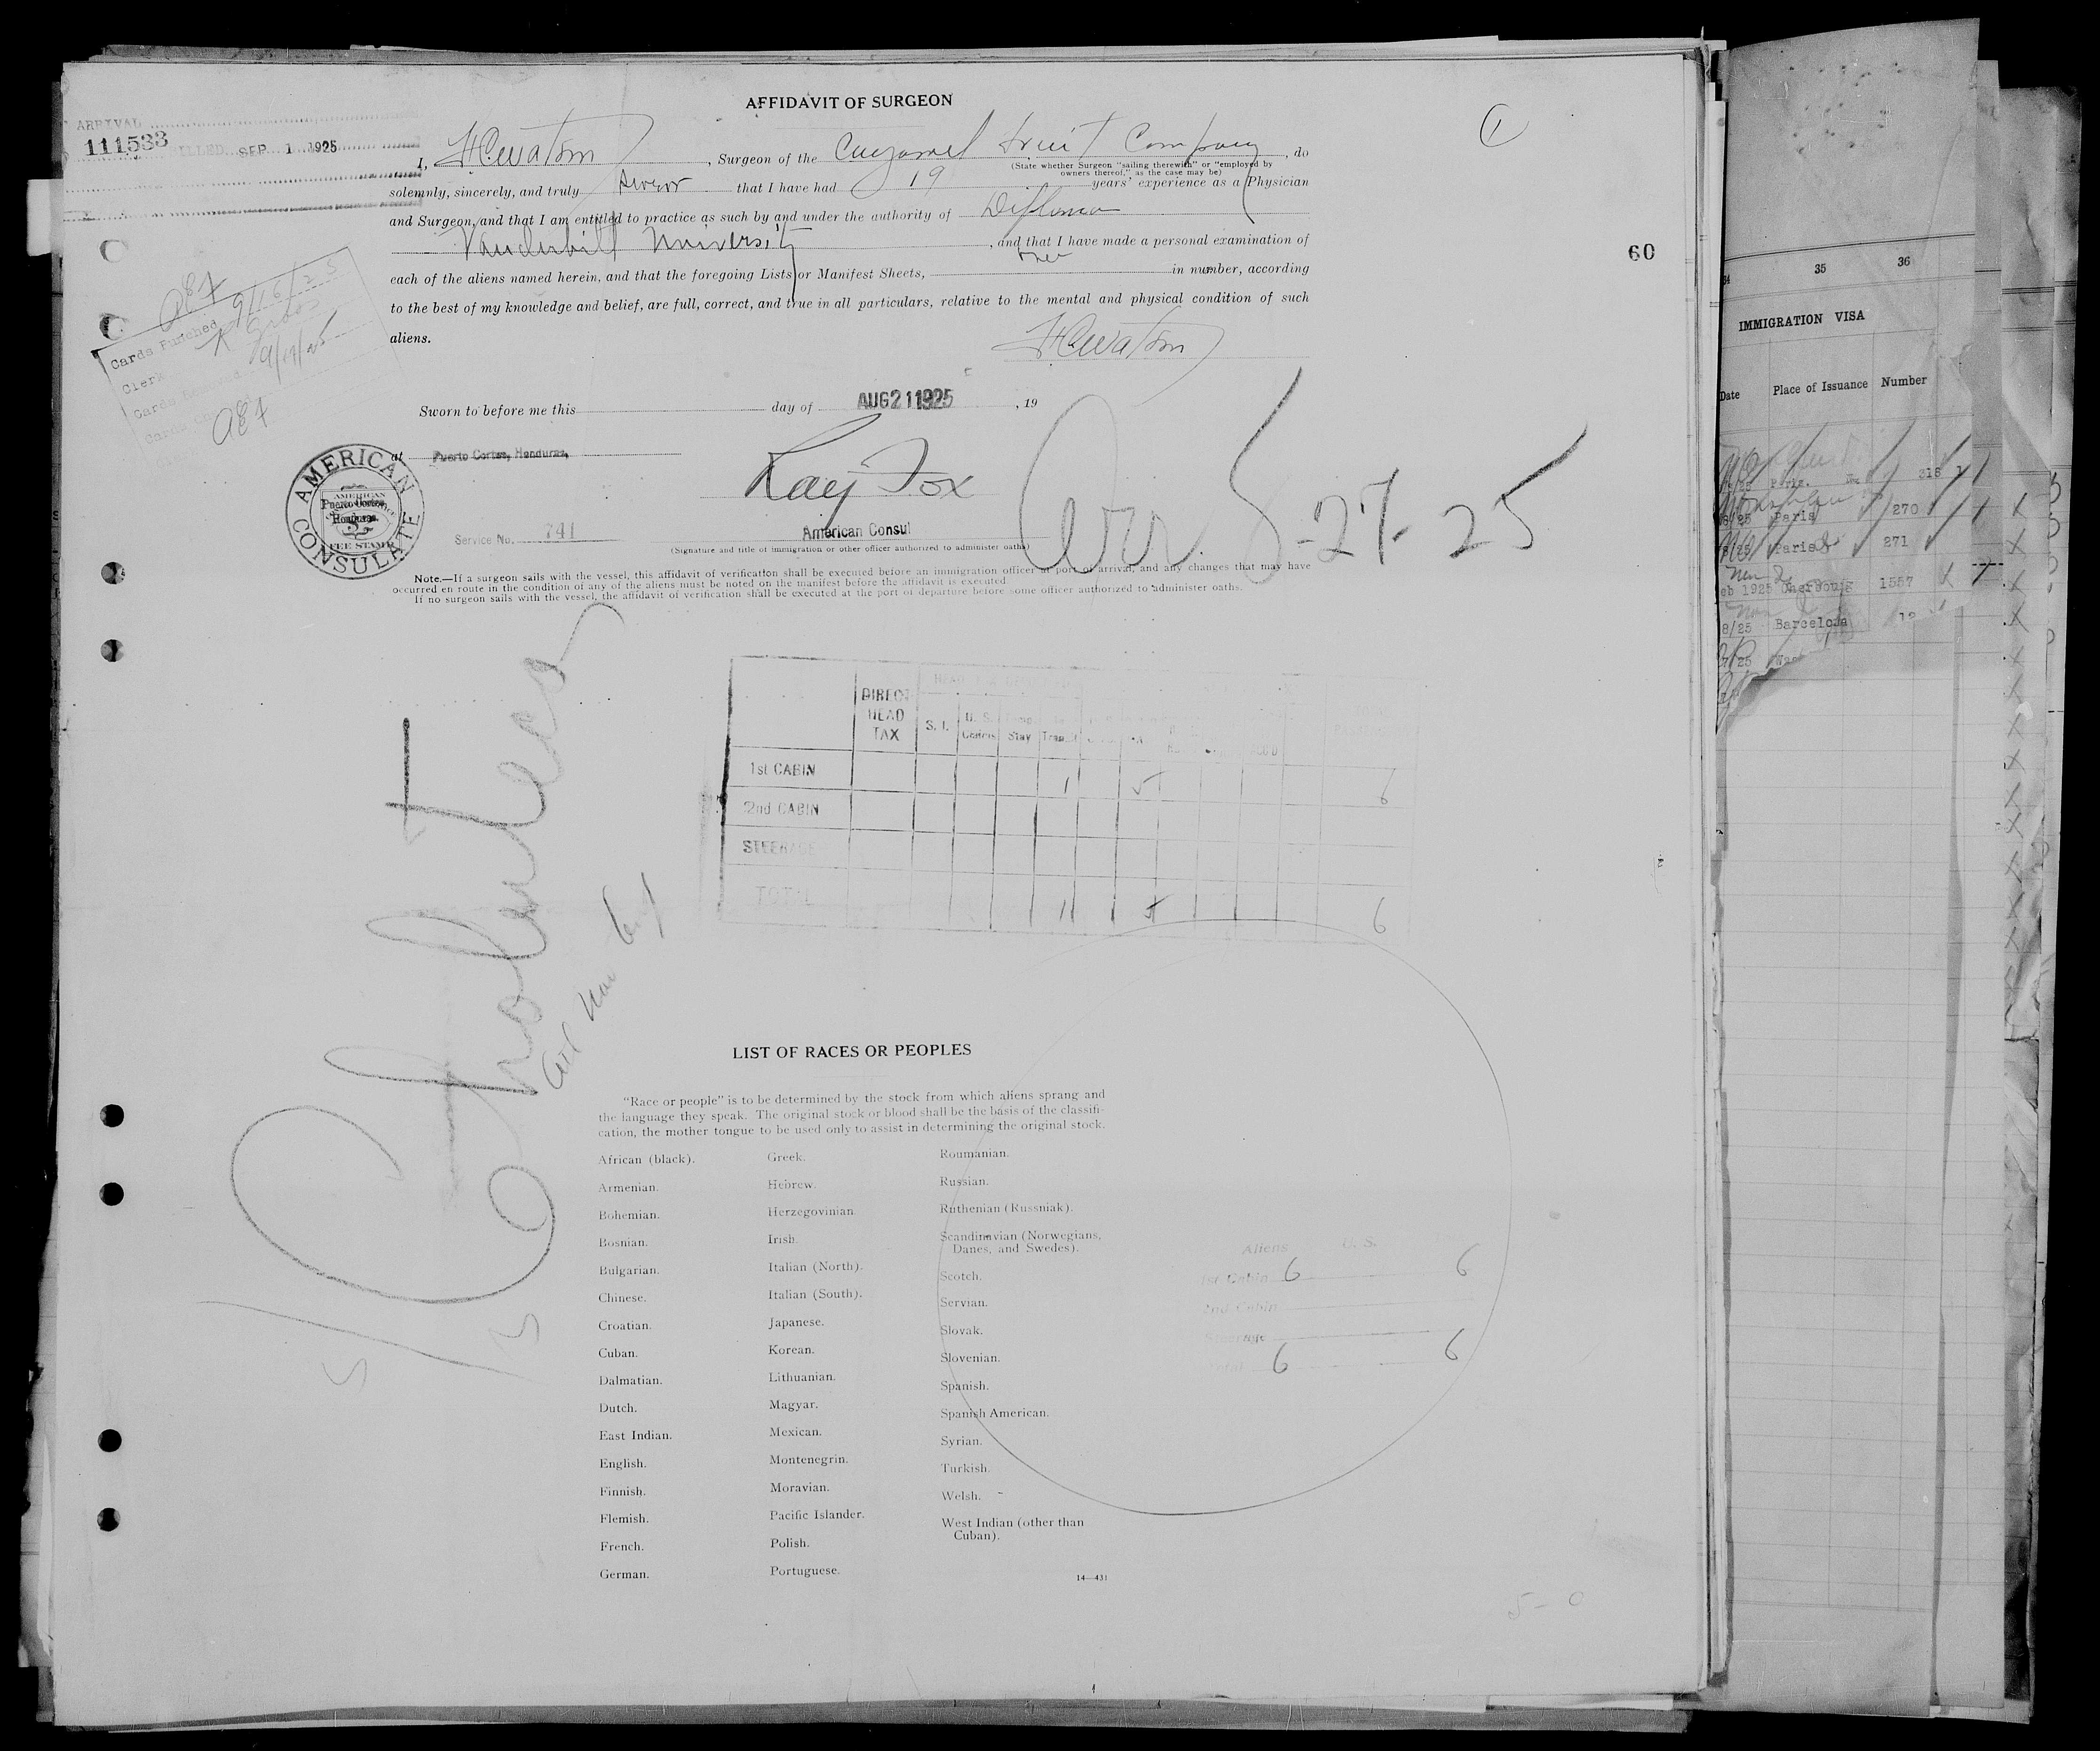 AFFIDAVIT OF SURGEON
1
ARRIVAL
111533
FILLED SEP 1 1925
I, H C Watson, Surgeon of the Cuyamel Fruit Company, do
(State whether Surgeon "sailing therewith" or "employed by
owners thereof," as the case may be)
solemnly, sincerely, and truly swear that I have had 19 years' experience as a Physician
and Surgeon, and that I am entitled to practice as such by and under the authority of Diploma
Vanderbilt University, and that I have made a personal examination of
each of the aliens named herein, and that the foregoing Lists or Manifest Sheets, one in number, according
to the best of my knowledge and belief, are full, correct, and true in all particulars, relative to the mental and physical condition of such
aliens.
H C Watson
60
Cards Punched 9/16/25
Clerk
9/17/25
Sworn to before me this day of AUG 21 1925, 19
at Puerto Cortes, Honduras,
Ray Fox
American Consul
(Signature and title of immigration or other officer authorized to administer oaths)
AMERICAN CONSULATE
AMERICAN
Puerto Cortes,
Honduras.
FEE STAMP
Service No. 741
8-27-25
Note.—If a surgeon sails with the vessel, this affidavit of verification shall be executed before an immigration officer at port of arrival, and any changes that may have
occurred en route in the condition of any of the aliens must be noted on the manifest before the affidavit is executed
If no surgeon sails with the vessel, the affidavit of verification shall be executed at the port of departure before some officer authorized to administer oaths.
DIRECT
HEAD
TAX
S. I.
U. S.
Stay
Transit
1st CABIN 1 5 6
2nd CABIN
STEERAGE
TOTAL 1 5 6
Choluteca
LIST OF RACES OR PEOPLES
"Race or people" is to be determined by the stock from which aliens sprang and
the language they speak. The original stock or blood shall be the basis of the classifi-
cation, the mother tongue to be used only to assist in determining the original stock.
African (black).
Armenian.
Bohemian.
Bosnian.
Bulgarian.
Chinese.
Croatian.
Cuban.
Dalmatian.
Dutch.
East Indian.
English.
Finnish.
Flemish.
French.
German.
Greek.
Hebrew.
Herzegovinian.
Irish.
Italian (North).
Italian (South).
Japanese.
Korean.
Lithuanian.
Magyar.
Mexican.
Montenegrin.
Moravian.
Pacific Islander.
Polish.
Portuguese.
Roumanian.
Russian.
Ruthenian (Russniak).
Scandinavian (Norwegians,
Danes, and Swedes).
Scotch.
Servian.
Slovak.
Slovenian.
Spanish.
Spanish American.
Syrian.
Turkish.
Welsh.
West Indian (other than
Cuban).
14—431
Aliens U. S.
1st Cabin 6 6
2nd Cabin
Steerage
Total 6 6
5 - 0
34 35 36
IMMIGRATION VISA
Date Place of Issuance Number
Paris. 315
Paris 270
Paris 271
Feb 1925 Cherbourg 1557
8/25 Barcelona 12